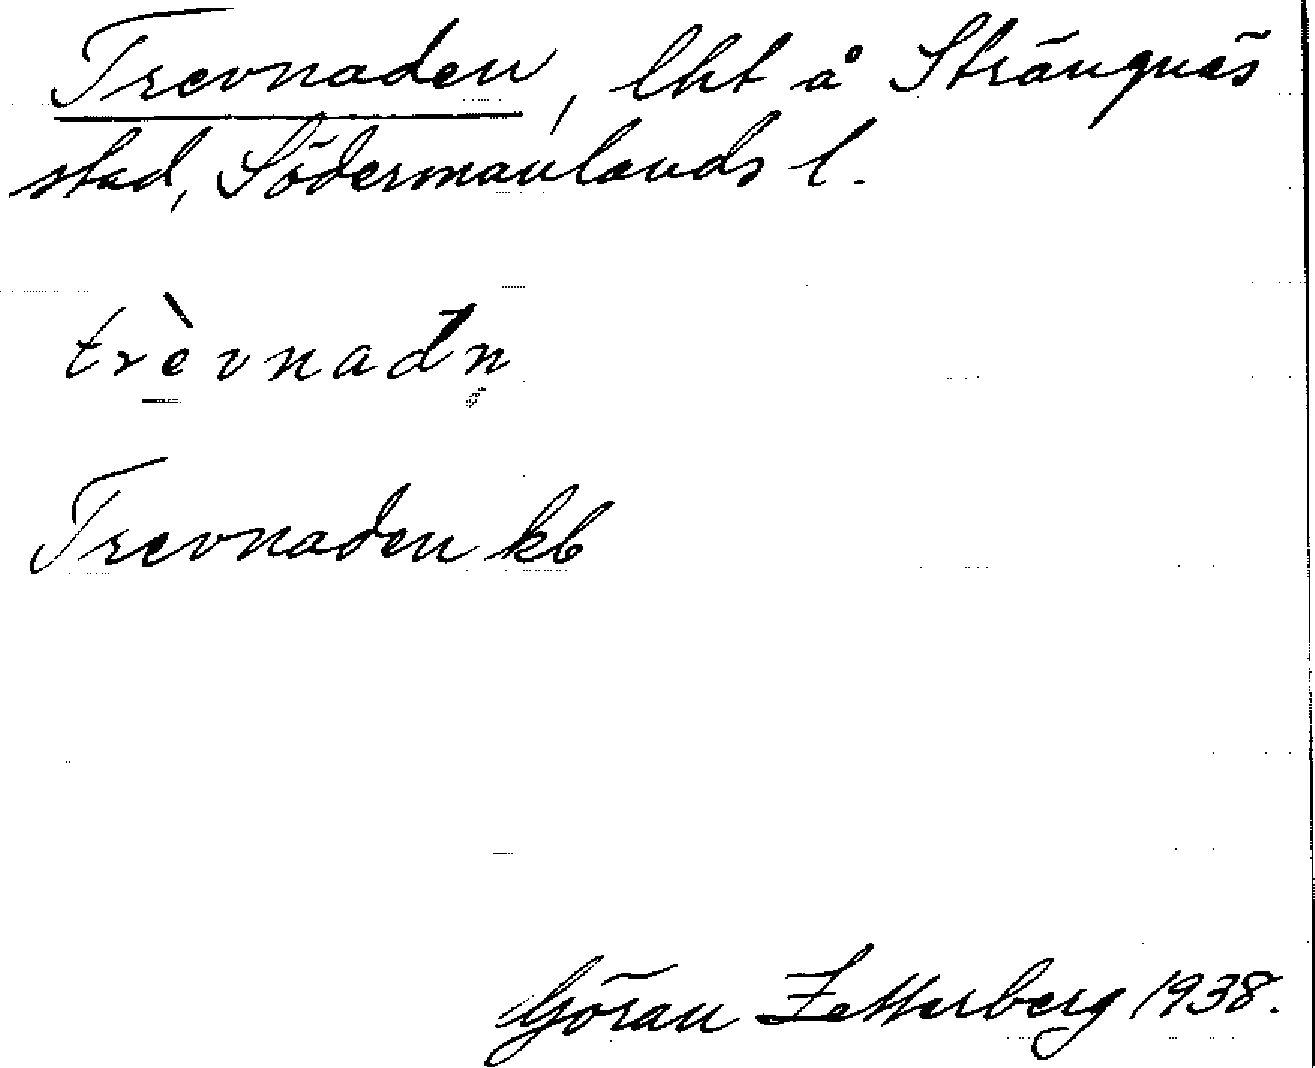 Trevnaden, lht å Strängnäs
stad, Södermanlands l.
trèvnadn̥
Trevnaden kb
Göran Zetterberg 1938.